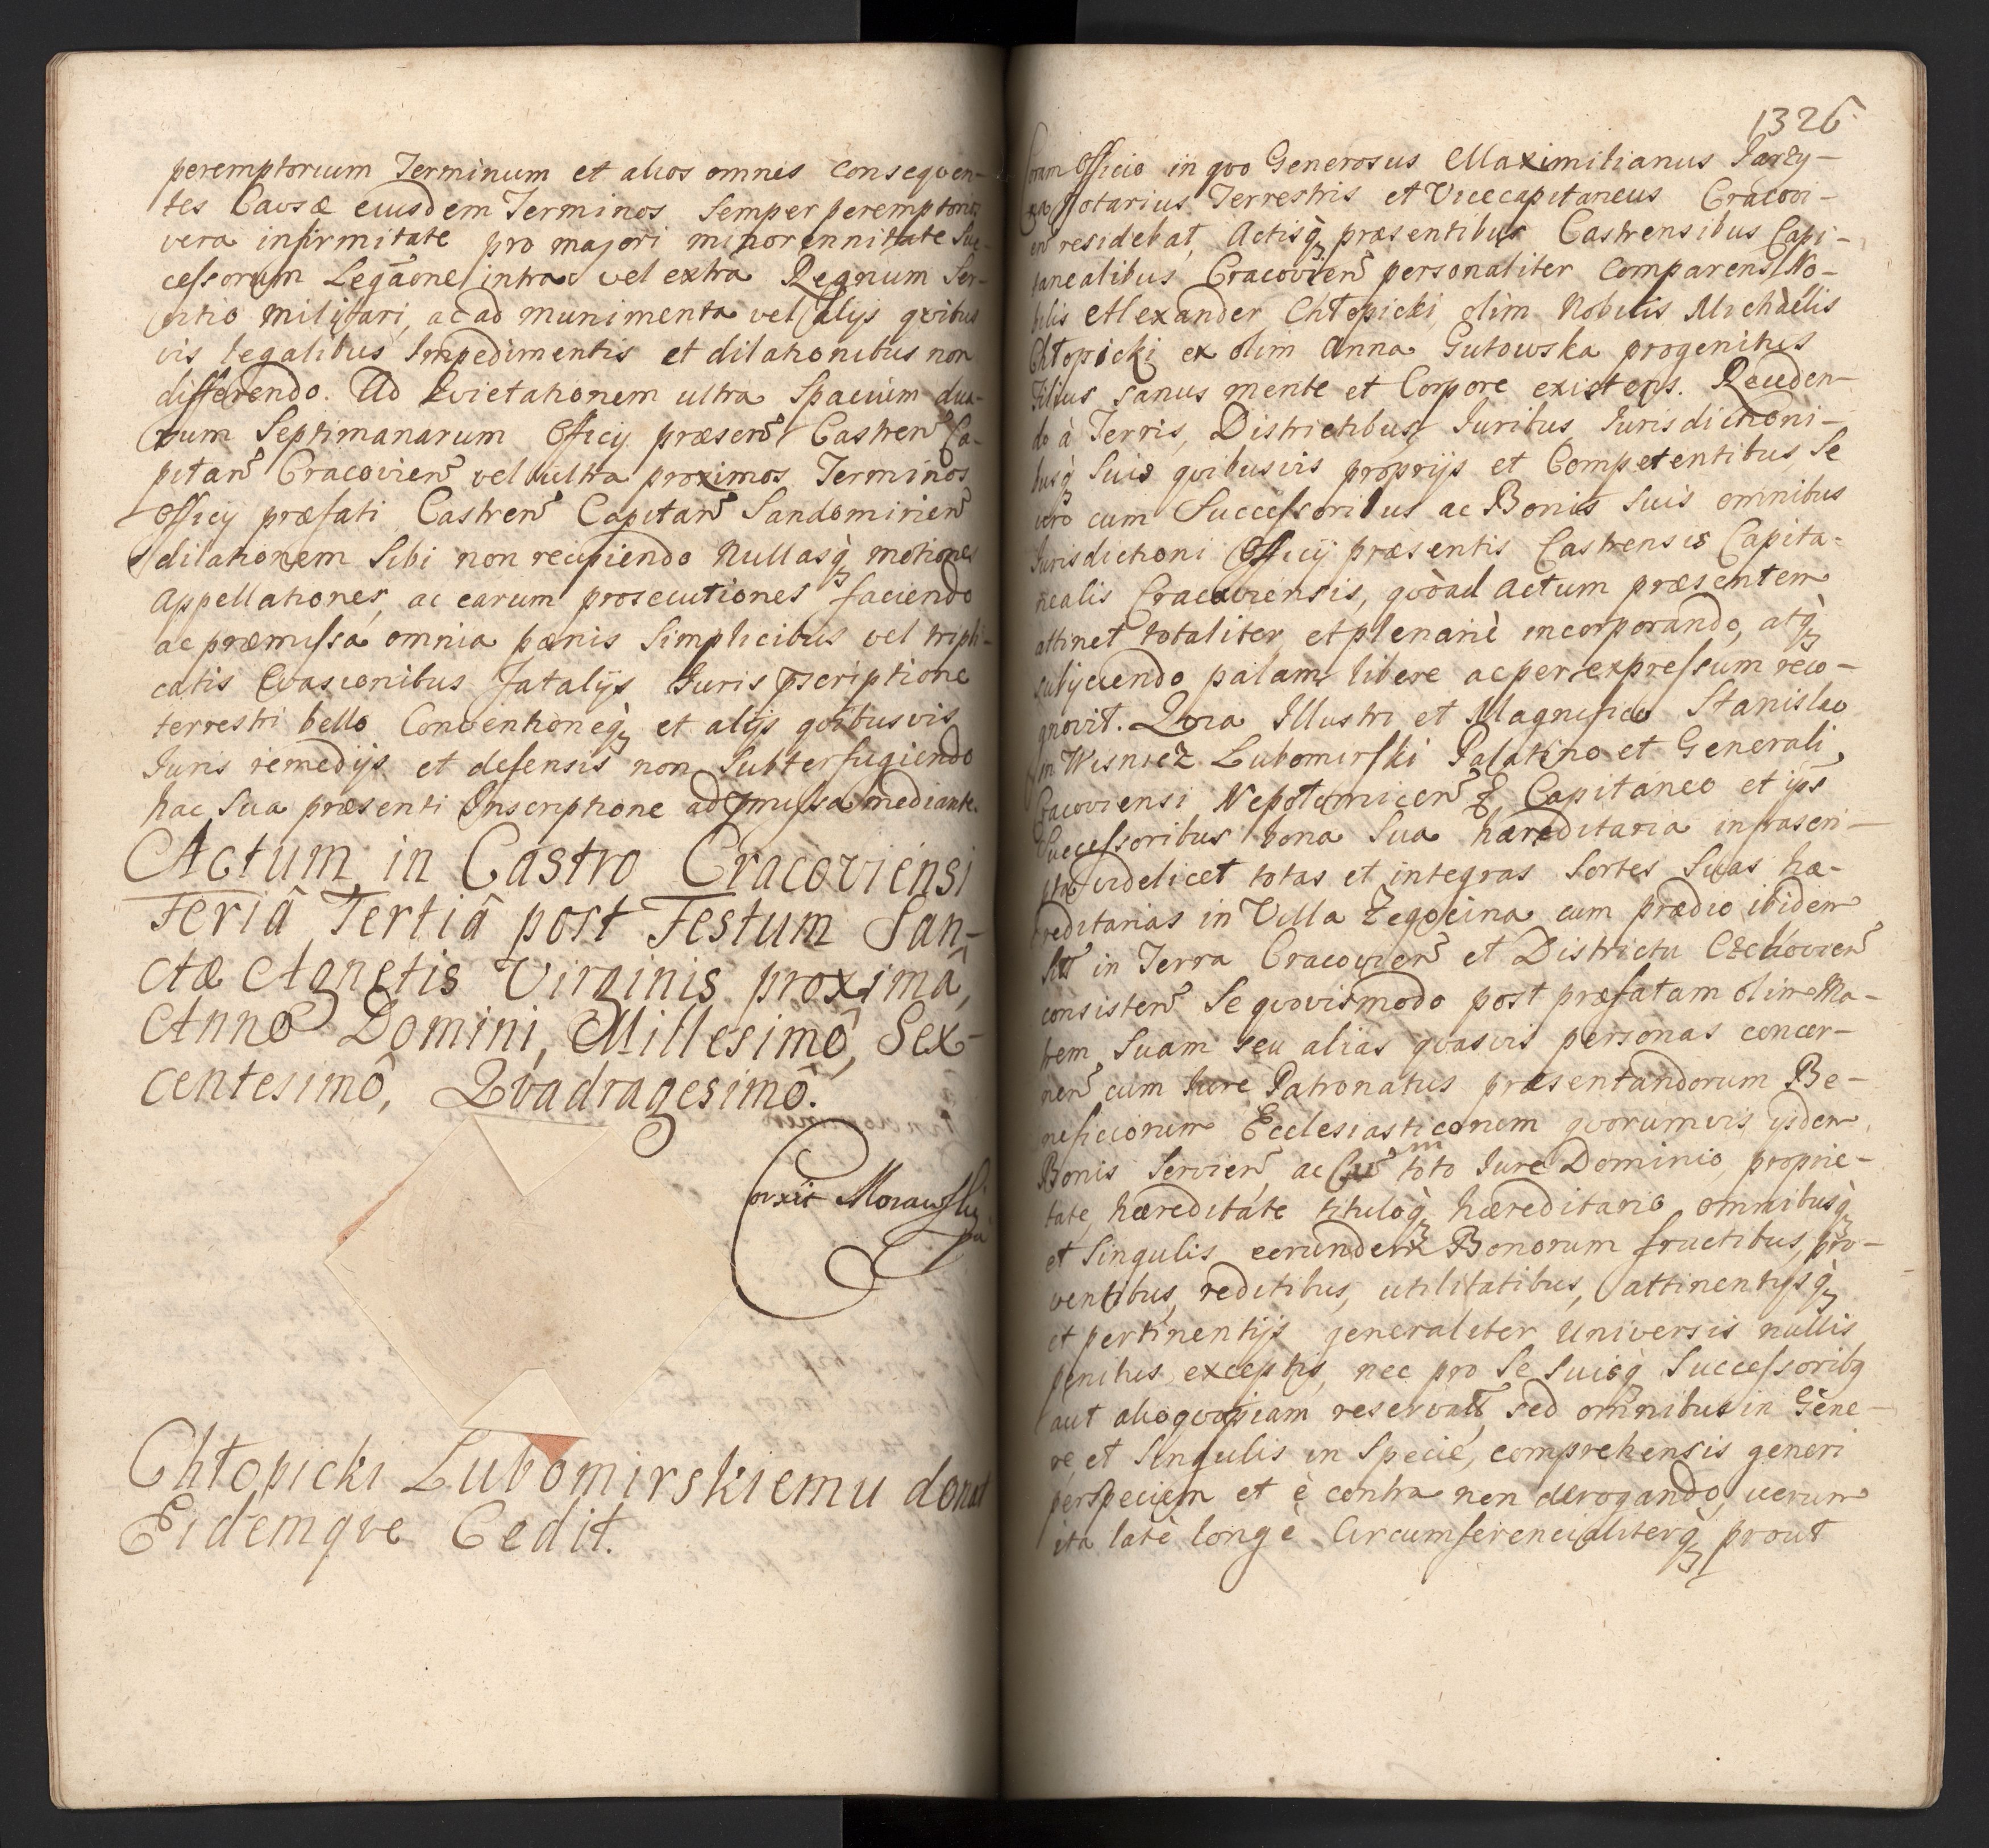 peremptorium Terminum et alios omnes conseqven-
tes Cavsæ eiusdem Terminos semper peremptorios
vera infirmitate pro majori minorennitate Suc-
cessorum Legãone intra vel extra Regnum Ser-
vitio militari, ac ad munimenta vel alijs qvibus
vis legalibus Impedimentis et dilationibus non
differendo. Ad Evictationem ultra Spacium dua-
rum Septimanarum Officij præsen Castren Ca-
pitan Cracovien vel ultra proximos Terminos
Officij præfati Castren Capitan Sandomirien
dilationem Sibi non recipiendo Nullasq motiones
Appellationes, ac earum prosecutiones faciendo
ac præmissa omnia pænis Simplicibus vel tripli-
catis Evasionibus fatalijs Juris pscriptione
terrestri bello Conventioneq et alijs qvibusvis
Juris remedijs et defensis non Subterfugiendo
hac Sua præsenti Inscriptione ad pmissa mediante.
Actum in Castro Cracoviensi
Feriâ Tertiâ post Festum San-
ctæ Agnetis Virginis proximâ,
Anno Domini, Millesimô, Sex-
centesimô, Qvadragesimô.
Corxit Morawski
Chłopicki Lubomirskiemu donat
Eidemqve Cedit.
1326
Coram Officio in qvo Generosus Maximilianus Jarzy-
na Notarius Terrestris et Vicecapitaneus Cracovi-
en residebat, Actisq præsentibus Castrensibus Capi-
tanealibus Cracovien personaliter Comparens No-
bilis Alexander Chłopicki olim Nobilis Michaelis
Chłopicki ex olim Anna Gutowska progenitus
Filius sanus mente et Corpore existens. Receden-
do à Terris, Districtibus, Juribus Jurisdictioni-
busq Suis qvibusvis proprijs et Competentibus, Se
vero cum Successoribus ac Bonis Suis omnibus
Jurisdictioni Officij præsentis Castrensis Capita-
nealis Cracoviensis, qvòad Actum præsentem
attinet totaliter et plenariè incorporando, atq
subijciendo palam libere ac per expressum reco-
gnovit. Qvia Illustri et Magnifico Stanislao
in Wisnicz Lubomirski Palatino et Generali
Cracoviensi Nepołomicen & Capitaneo et ips
Successoribus bona Sua hæreditaria infrascri-
pta videlicet totas et integras Sortes Suas hæ-
reditarias in Villa Zegocina cum prædio ibidem
in Terra Cracovien et Districtu Czchovien
consisten Se qvovismodo post præfatam olim Ma-
trem Suam seu alias qvasvis personas concer-
nen cum Jure Patronatus præsentandorum Be-
neficiorum Ecclesiasticorum qvorumvis ijsdem
Bonis Servien ac Cum toto Jure Dominio, proprie-
tate, hæreditate tituloq hæreditario omnibusq
et Singulis eorundem Bonorum fructibus, pro-
ventibus, reditibus, utilitatibus, attinentijsq
et pertinentijs generaliter Universis nullis
penitus exceptis, nec pro Se Suisq Successoribq
aut alio qvopiam reservatis, sed omnibus in Gene-
re et Singulis in Specie, comprehensis generi
per speciem et è contra non derogando, verum
ita latè longè Circumferencialiterq prout